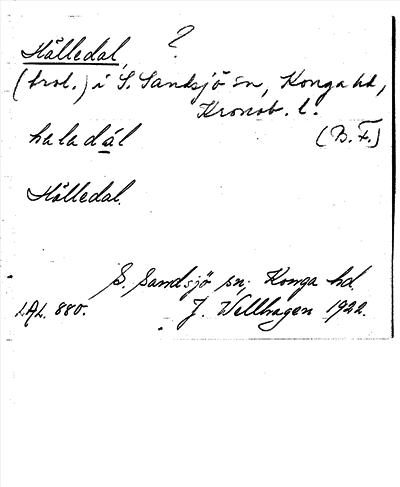 Hålledal, ?
(trol.) i S. Sandsjö sn, Konga hd,
Kronob. l.
(B. F.)
haladál
Hålledal.
S. Sandsjö sn, Konga hd.
LAL. 880. J. Wellhagen 1922.